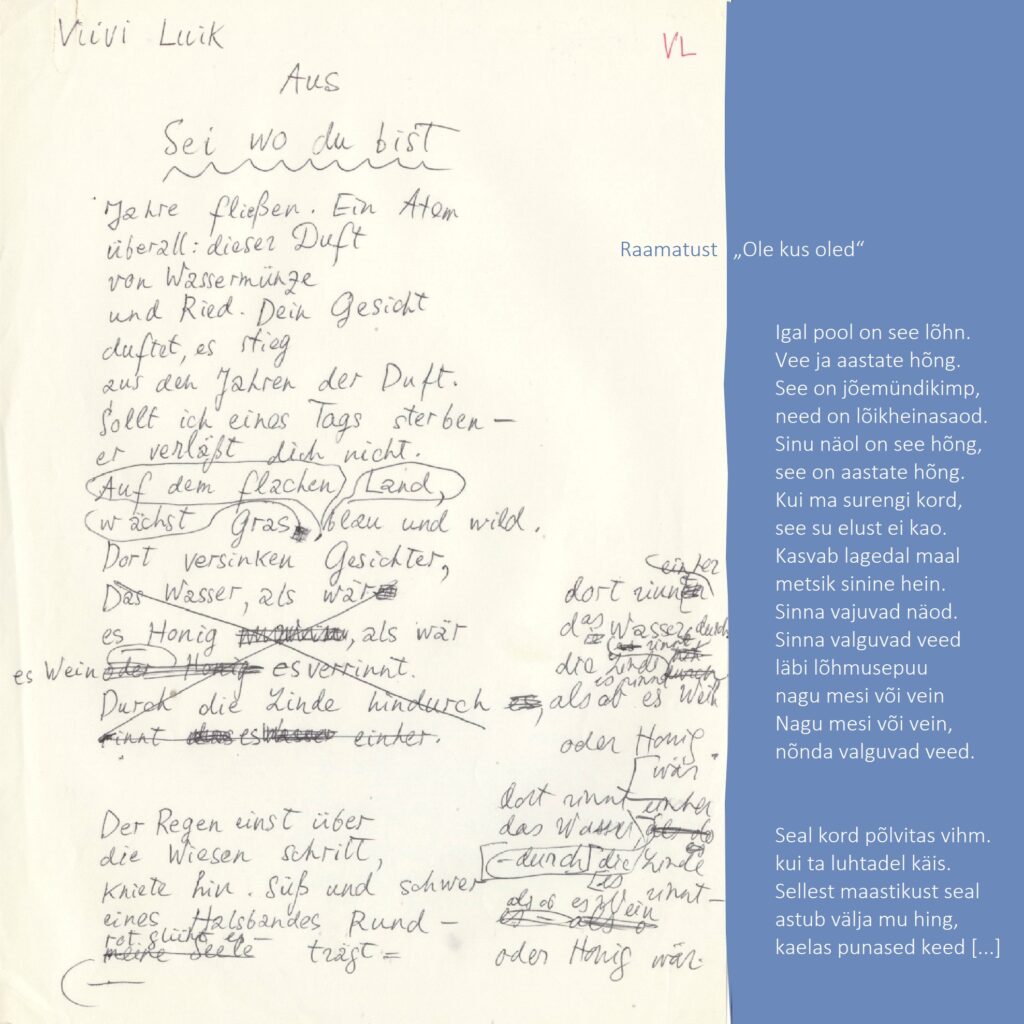 Viivi Luik
VL
Aus
Sei wo du bist
Jahre fließen. Ein Atem
überall: dieser Duft
von Wasserminze
und Ried. Dein Gesicht
duftet, es stieg
aus den Jahren der Duft.
Sollt ich eines Tags sterben –
er verläßt dich nicht.
Auf dem flachen Land,
wächst Gras, blau und wild.
Dort versinken Gesichter,
Das Wasser, als wär
es Honig, als wär
es Wein oder Honig es verrinnt.
Durch die Linde hindurch
rinnt das es Wasser einher.
Der Regen einst über
die Wiesen schritt,
kniete hin. Süß und schwer
eines Halsbandes Rund –
rot glüht es –
meine Seele trägt =
einher
dort rinnt
das Wasser durch
die Linde
es rinnt
, als ob es Wein
oder Honig
wär
dort rinnt einher
das Wasser als ob
– durch die Linde
rinnt –
als ob es Wein
es – als o
oder Honig wär.
Raamatust „Ole kus oled“
Igal pool on see lõhn.
Vee ja aastate hõng.
See on jõemündikimp,
need on lõikheinasaod.
Sinu näol on see hõng,
see on aastate hõng.
Kui ma surengi kord,
see su elust ei kao.
Kasvab lagedal maal
metsik sinine hein.
Sinna vajuvad näod.
Sinna valguvad veed
läbi lõhmusepuu
nagu mesi või vein
Nagu mesi või vein,
nõnda valguvad veed.
Seal kord põlvitas vihm.
kui ta luhtadel käis.
Sellest maastikust seal
astub välja mu hing,
kaelas punased keed [...]